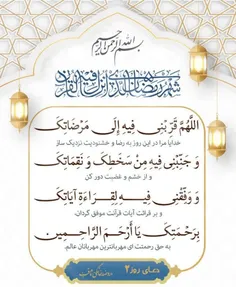 بسم الله الرحمن الرحیم
شهر رمضان الذی انزل فیه القرآن
اللَّهُمَّ قَرِّبْنِي فِيهِ إِلَى مَرْضَاتِكَ
خدایا مرا در این روز به رضا و خشنودیت نزدیک ساز
وَ جَنِّبْنِي فِيهِ مِنْ سَخَطِكَ وَ نَقِمَاتِكَ
و از خشم و غضبت دور کن
وَ وَفِّقْنِي فِيهِ لِقِرَاءَةِ آيَاتِكَ
و بر قرائت آیات قرآنت موفق گردان.
بِرَحْمَتِكَ يَا أَرْحَمَ الرَّاحِمِينَ
به حق رحمتت ای مهربانترین مهربانان عالم
دعای روز ۲